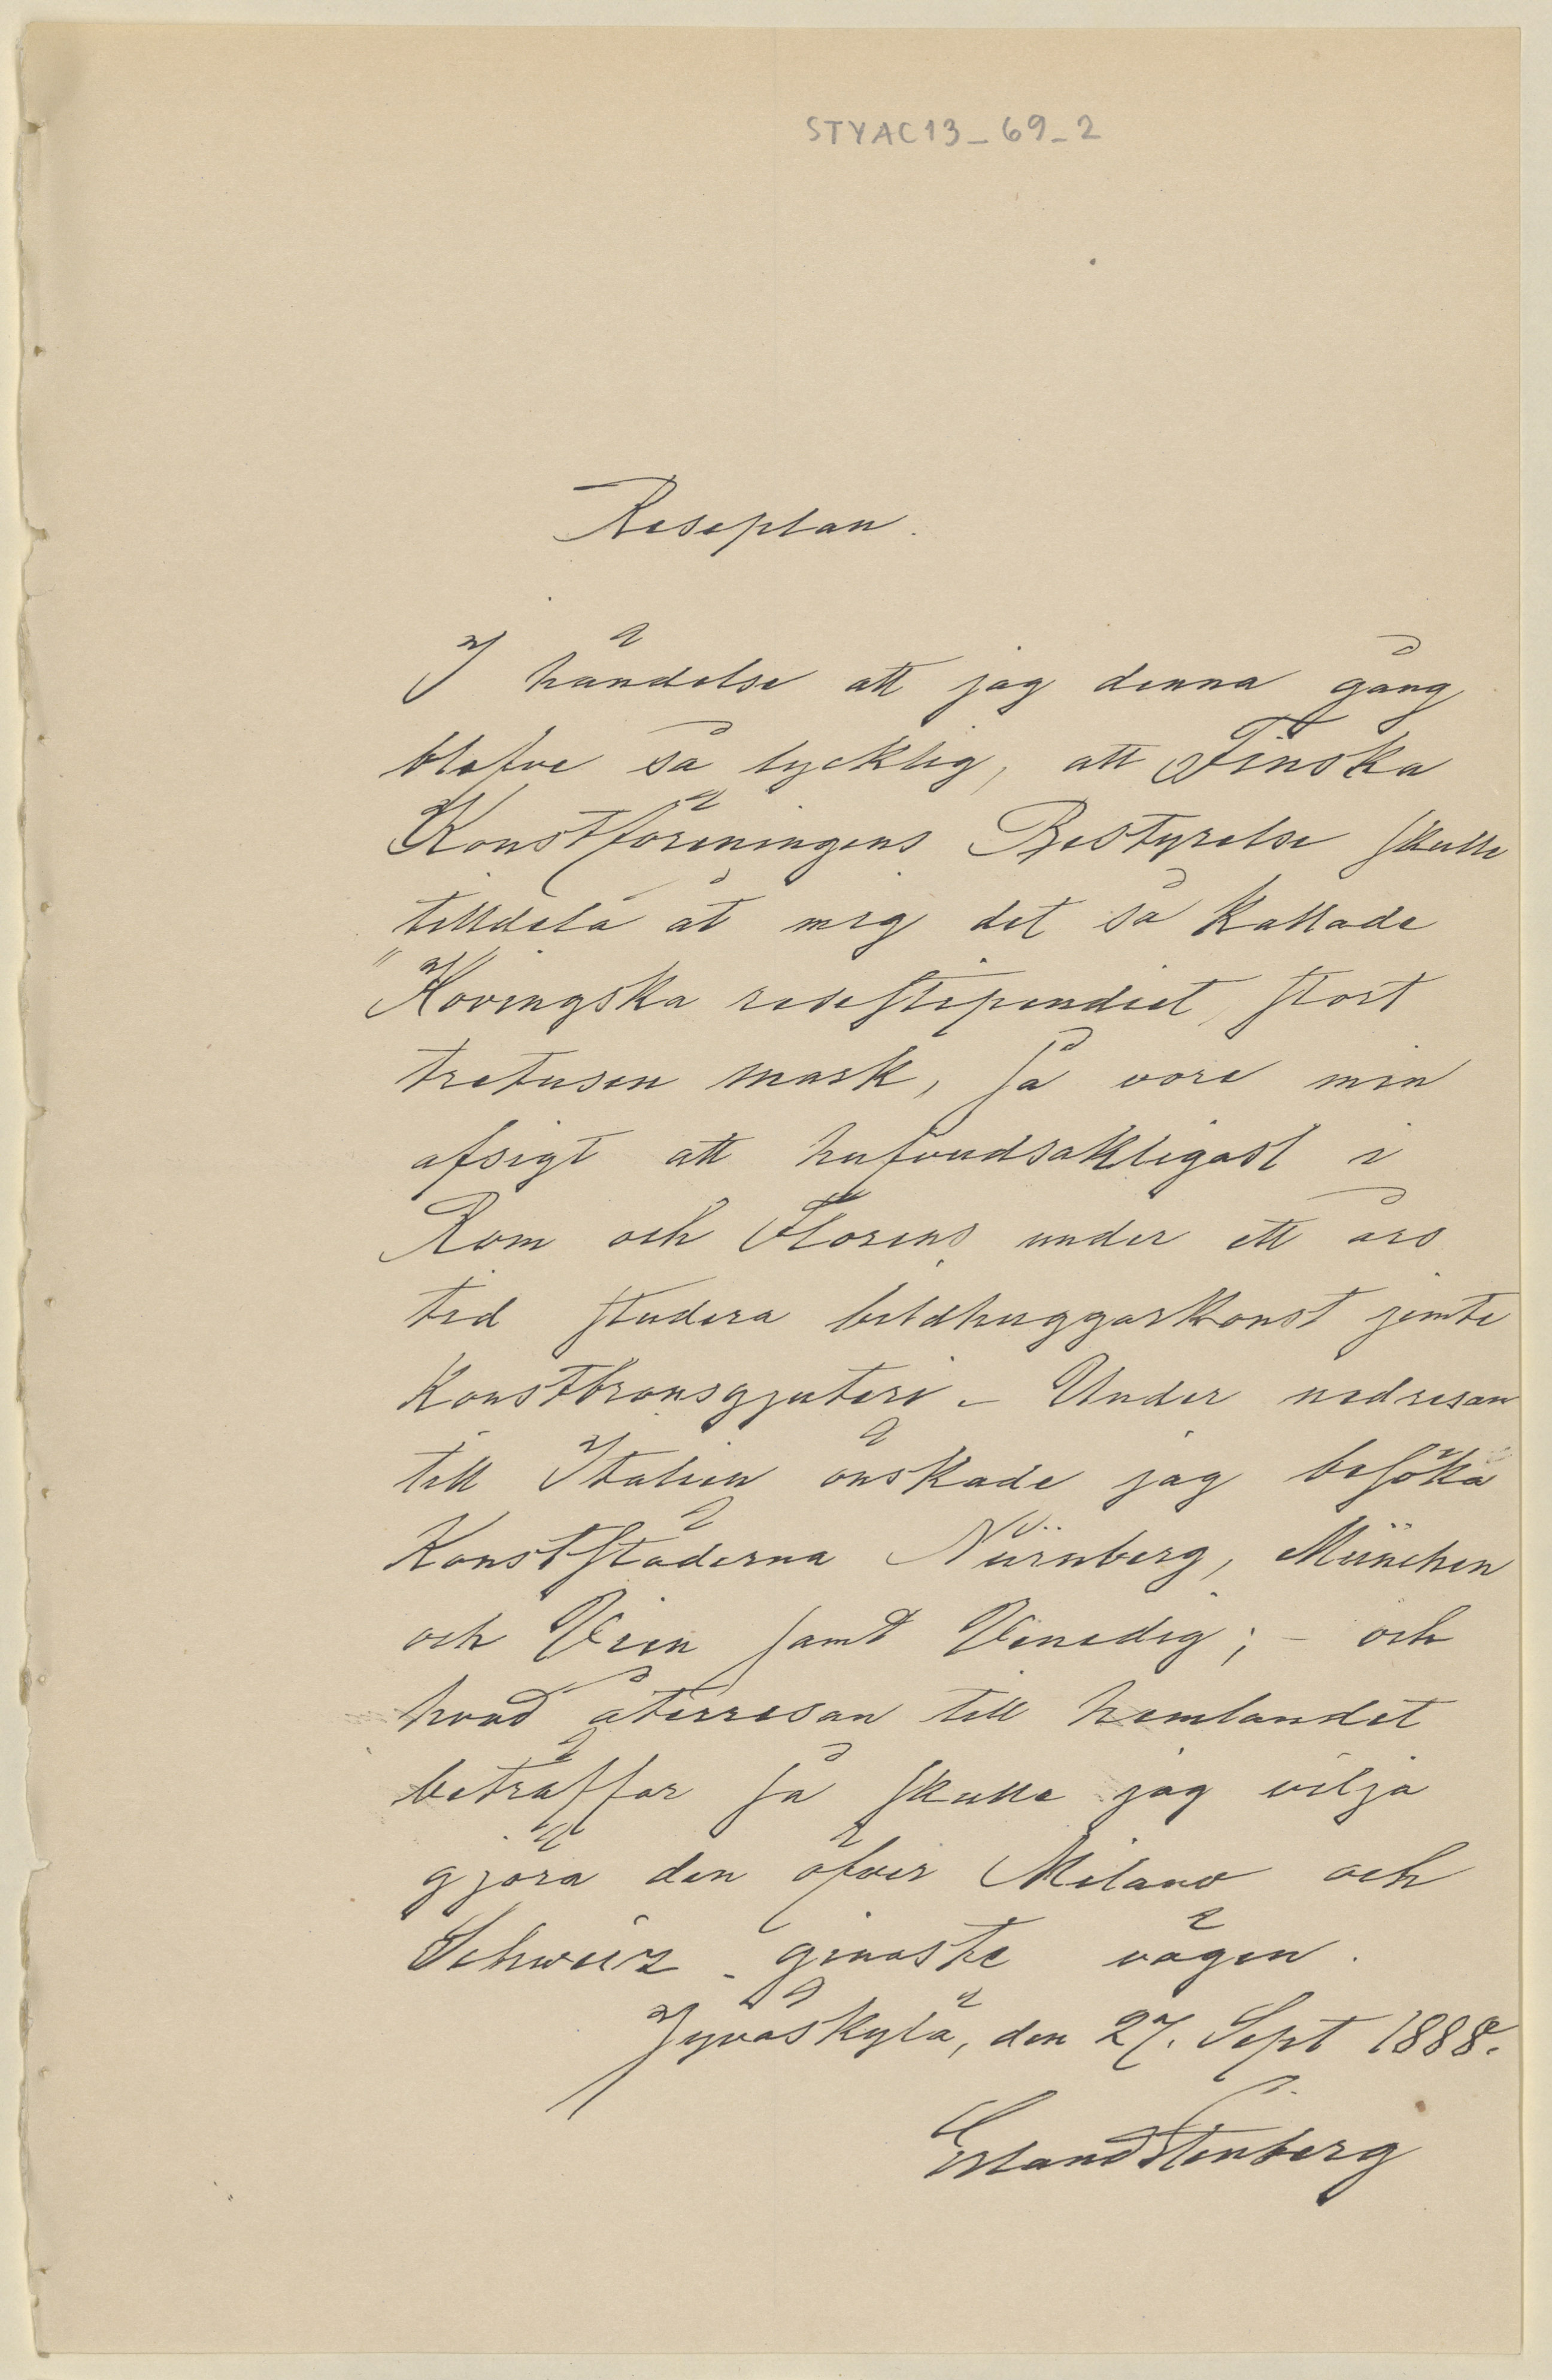 STYAC13_69_2
Reseplan.
I händelse att jag denna gång
blefve så lycklig, att Finska
Konstföreningens Bestyrelse skulle
tilldela åt mig det så kallade
"Hovingska resestipendiet, stort
tretusen mark, så vore min
afsigt att hufvudsakligast i
Rom och Florens under ett års
tid studera bildhuggarkonst jemte
Konstbronsgjuteri. – Under nedresan
till Italien önskade jag besöka
Konststäderna Nürnberg, München
och Wien samt Venedig; – och
hvad återresan till hemlandet
beträffar så skulle jag vilja
gjöra den öfver Milano och
Schweiz - ginaste vägen.
Jyväskylä, den 27. Sept 1888.
Erland Stenberg